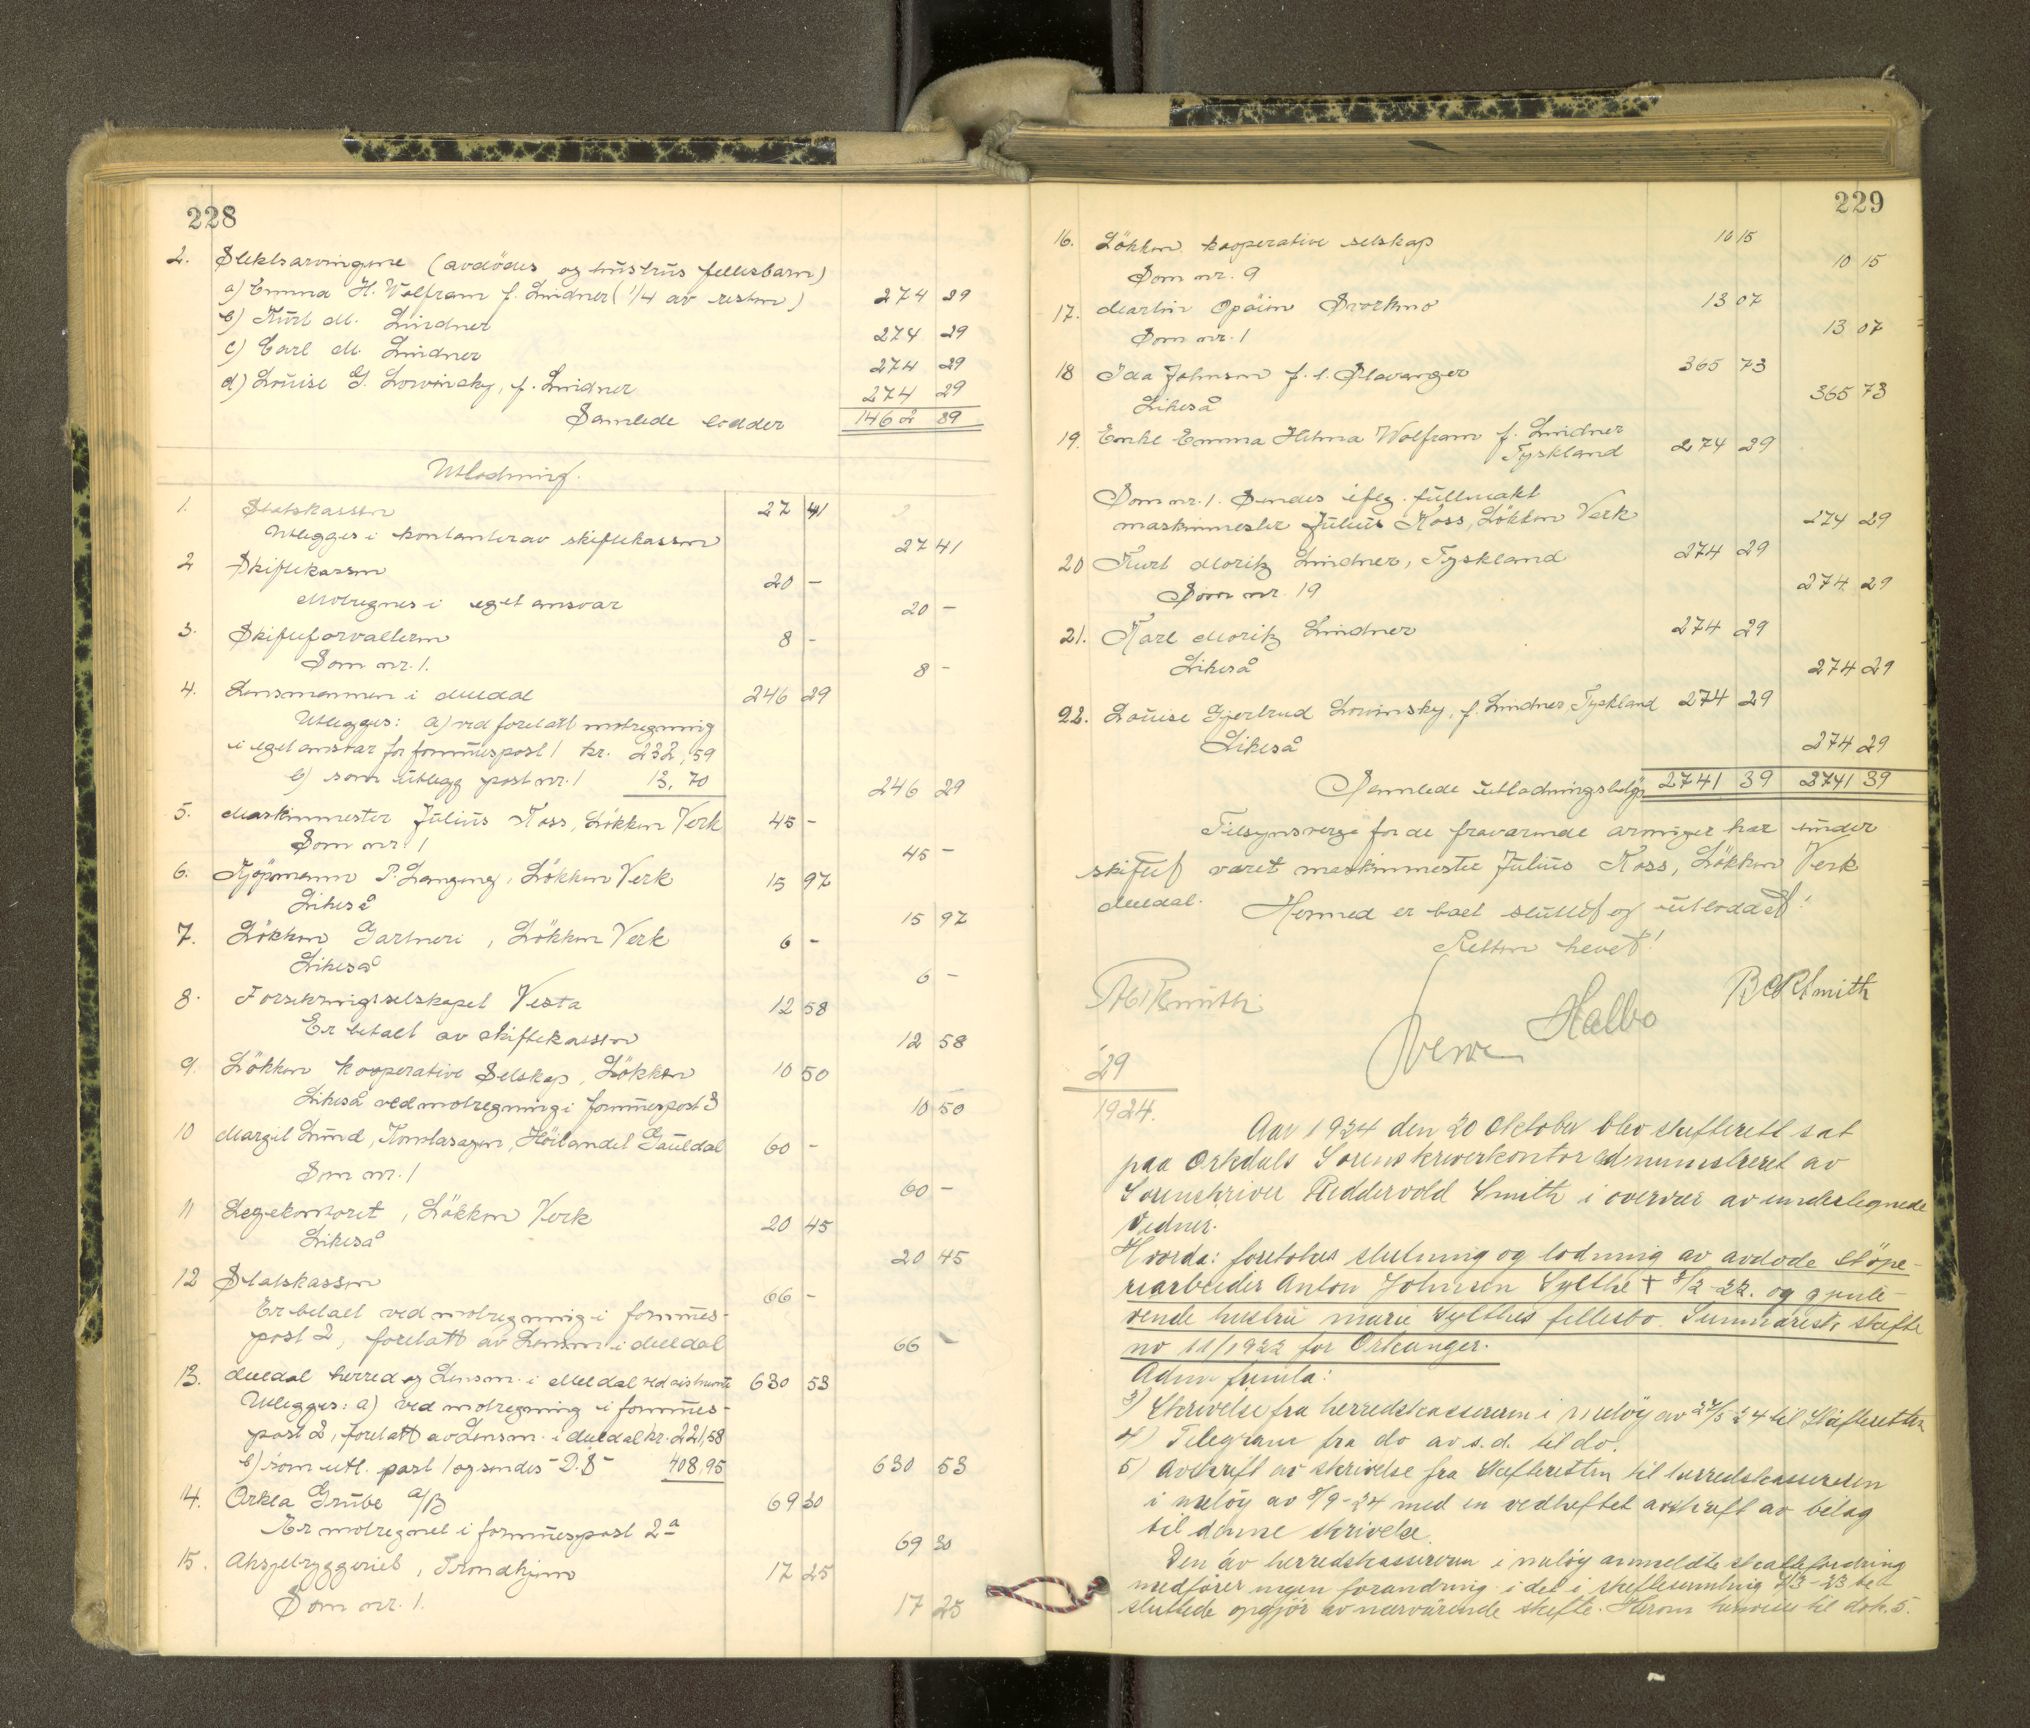 228
2. Slektsarvingene (avdödes og hustrus fellesbarn)
a) Emma H. Wolfram f. Lindner (1/4 av resten) 274 29
b) Kurt M. Lindner 274 29
c) Carl M. Lindner 274 29
d) Louise G. Lowinsky, f. Lindner 274 29
Samlede lodder 1462 89
Utlodning.
1. Statskassen 27 41
Utlegges i kontanter av skiftekassen 27 41
2 Skiftekassen 20 –
Motregnes i eget ansvar 20 –
3. Skifteforvalteren 8 –
Som nr. 1. 8 –
4. Lensmannen i Meldal 246 29
Utlegges: a) ved foretatt motregning
i eget ansvar for formuespost 1 kr. 232,59
b) som utlegg post nr. 1 13,70 246 29
5. Maskinmester Julius Koss, Lökken Verk 45 –
Som nr. 1 45 –
6. Kjöpmann P. Langeng, Lökken Verk 15 97
Likeså 15 97
7. Lökken Gartneri, Lökken Verk 6 –
Likeså 6 –
8. Forsikringsselskapet Vesta 12 58
Er betalt av skiftekassen 12 58
9. Lökken kooperative Selskap, Lökken 10 50
Likeså ved motregning i formuespost 3 10 50
10 Margit Lund, Höilandet Gauldal 60 –
Som nr. 1 60 –
11 Legekontoret, Lökken Verk 20 45
Likeså 20 45
12 Statskassen 66 –
Er betalt ved motregning i formues-
post 2, foretatt av Lensm. i Meldal 66 –
13. Meldal herred og Lensm. i Meldal 630 53
Utlegges: a) ved motregning i formues-
post 2, foretatt av Lensm. i Meldal kr. 221,58
b) som utl. post 1 og sendes D.S 408,95 630 53
14. Orkla Grube A/B 69 30
Er motregnet i formuespost 2a 69 30
15. Aktiebryggeriet, Trondhjem 17 25
Som nr. 1. 17 25
229
16. Lökken kooperative selskap 10 15
Som nr. 9 10 15
17. Martin Opöien Svorkmo 13 07
Som nr. 1 13 07
18 Ida Johnsen f. l. Stavanger 365 73
Likeså 365 73
19. Enke Emma Helma Wolfram f. Lindner
Tyskland 274 29
Som nr. 1. Sendes iflg. fullmakt
maskinmester Julius Koss, Lökken Verk 274 29
20 Kurt Moritz Lindner, Tyskland 274 29
Som nr. 19 274 29
21. Karl Moritz Lindner 274 29
Likeså 274 29
22. Louise Gjertrud Lowinsky, f. Lindner Tyskland 274 29
Likeså 274 29
Samlede utlodningsbelöp 2741 39 2741 39
Tilsynsverge for de fraværende arvinger har under
skiftet været maskinmester Julius Koss, Lökken Verk
Meldal.
Hermed er boet sluttet og utloddet!
Retten hevet!
Smith
Halbo
B Smith
29
1924.
Aar 1924 den 20 Oktober blev skifterett sat
paa Orkdals Sorenskriverkontor administreret av
Sorenskriver Reddervold Smith i overvær av undertegnede
vidner.
Hvorda: foretokes slutning og lodning av avdøde stöpe-
riarbeider Anton Johnsen Sylthe † 8/2-22. og gjenle-
vende hustru Marie Sylthes fellesbo. Summarisk skifte
no 11/1922 for Orkanger.
Actum
3) Skrivelse fra herredskassereren i Meløy av 27/5 24 til Skifteretten
4) Telegram fra do av s.d. til do.
5) Avskrift av skrivelse fra Skifteretten til herredskassereren
i Meløy av 8/9-24 med en vedheftet avskrift av bilag
til denne skrivelse.
Den av herredskassereren i Meløy anmeldte skattefordring
medfører ingen forandring i det i skiftesamling 7/3-23 be-
sluttede opgjör av nærværende skifte. Herom henvises til dok. 5.